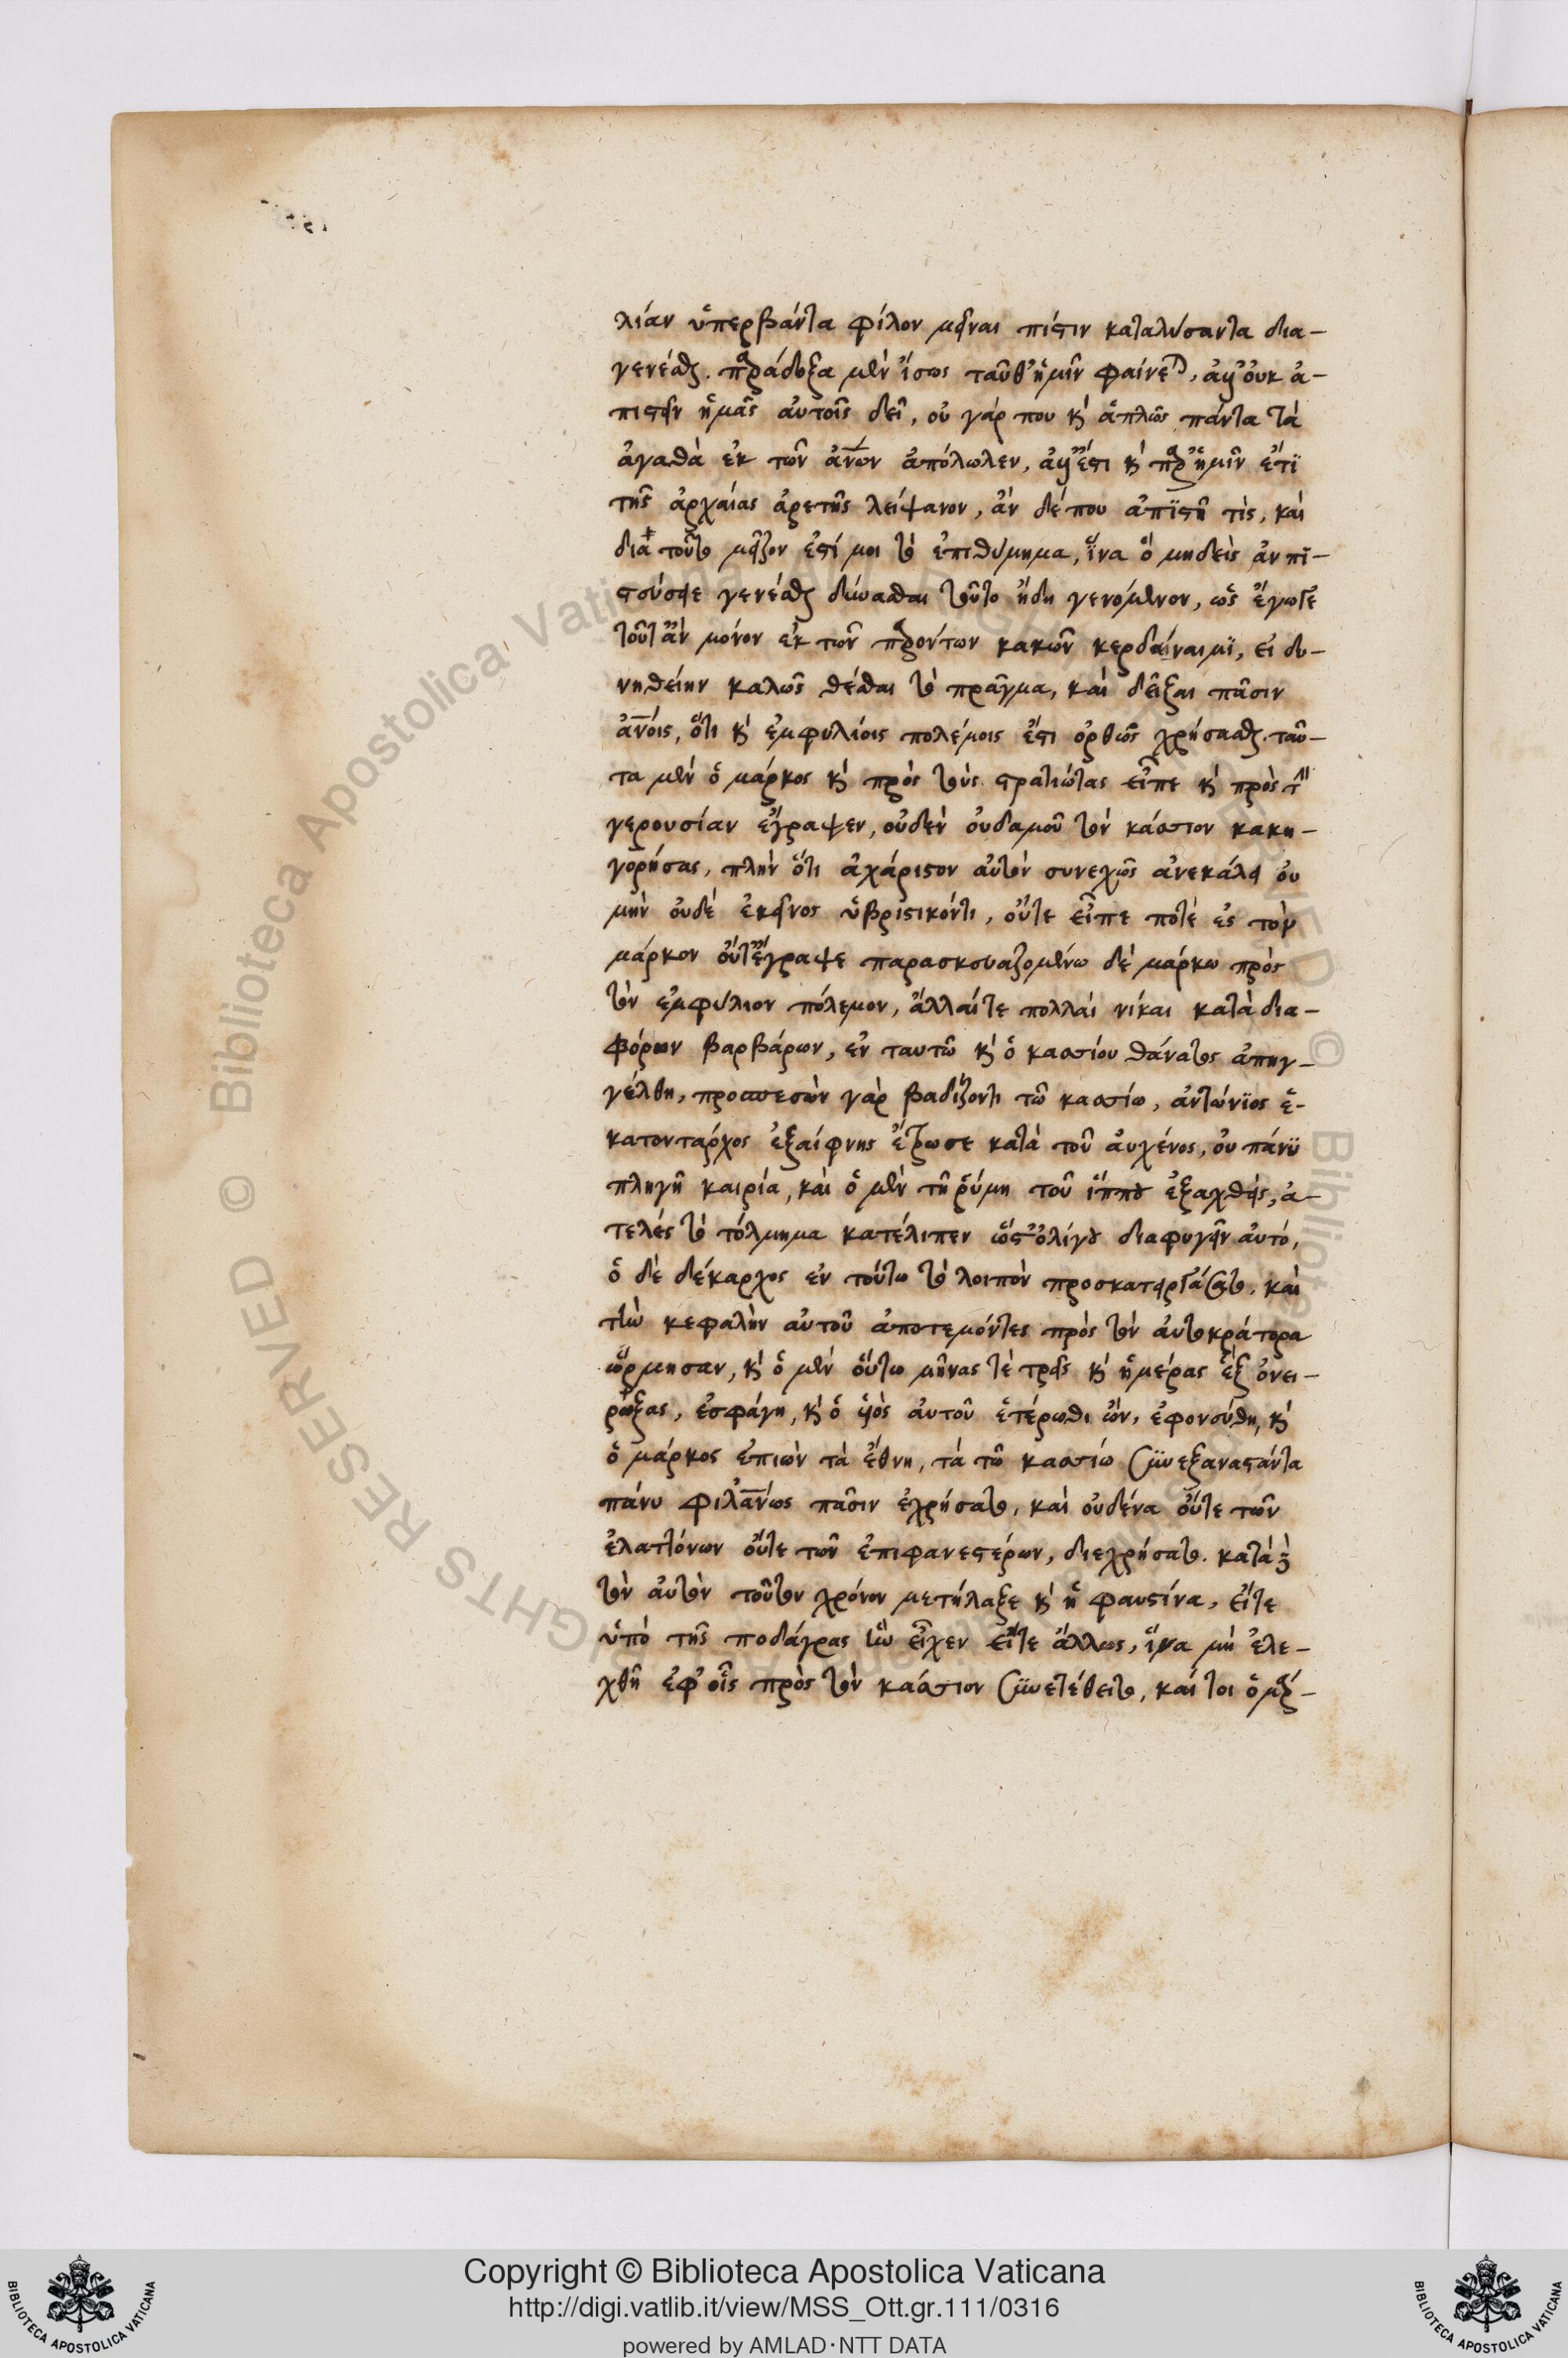 λίαν ὑπερβάντα φίλον μεῖναι πίστιν καταλύσαντα δια-
γενέσθαι. παράδοξα μὲν ἴσως ταῦθ' ἡμῖν φαίνεται, ἀλλ' οὐκ ἀ-
πιστεῖν ἡμᾶς αὐτοῖς δεῖ, οὐ γάρ που καὶ ἁπλῶς πάντα τὰ
ἀγαθὰ ἐκ τῶν ἀνων ἀπόλωλεν, ἀλλ' ἔστι καὶ παρ' ἡμῖν ἔτϊ
τῆς ἀρχαίας ἀρετῆς λείψανον, ἂν δέ που ἀπϊστῆ τὶς, καὶ
διὰ τοῦτο μεῖζον ἐστί μοι τὸ ἐπιθύμημα, ἵνα ὃ μηδεὶς ἂν πι-
στεύσειε γενέσθαι δύνασθαι τοῦτο ἤδη γενόμενον, ὡς ἔγωγε
τοῦτ' ἂν μόνον ἐκ τῶν παρόντων κακῶν κερδαίναιμϊ, εἰ δυ-
νηθείην καλῶς θέσθαι τὸ πρᾶγμα, καὶ δεῖξαι πᾶσιν
ἀνοις, ὅτι καὶ ἐμφυλίοις πολέμοις ἔστι ὀρθῶς χρήσασθαι. ταῦ-
τα μὲν ὁ μάρκος καὶ πρὸς τοὺς στρατιώτας εἶπε καὶ πρὸς τὴν
γερουσίαν ἔγραψεν, οὐδὲν οὐδαμοῦ τὸν κάσσιον κακη-
γορήσας, πλὴν ὅτι ἀχάριστον αὐτὸν συνεχῶς ἀνεκάλει οὐ
μὴν οὐδὲ ἐκεῖνος ὑβριστικόντι, οὔτε εἶπε ποτὲ ἐς τὸν
μάρκον οὔτ' ἔγραψε παρασκευαζομένω δὲ μάρκω πρὸς
τὸν ἐμφύλιον πόλεμον, ἄλλαί τε πολλαὶ νίκαι κατὰ δια-
φόρων βαρβάρων, ἐν ταυτῶ καὶ ὁ κασσίου θάνατος ἀπηγ-
γέλθη, προσπεσὼν γὰρ βαδίζοντι τῶ κασσίω, ἀντώνϊος ἑ-
κατονταρχος ἐξαίφνης ἔτρωσε κατὰ τοῦ αὐχένος, οὐ πάνϋ
πληγῆ καιρία, καὶ ὁ μὲν τῆ ῥύμη τοῦ ἵππου ἐξαχθεὶς, ἀ-
τελὲς τὸ τόλμημα κατέλιπεν ὥστ' ὀλίγου διαφυγεῖν αὐτό,
ὁ δὲ δέκαρχος ἐν τούτω τὸ λοιπὸν προσκατειργάσατο, καὶ
τὴν κεφαλὴν αὐτοῦ ἀποτεμόντες πρὸς τὸν αὐτοκράτορα
ὥρμησαν, καὶ ὁ μὲν οὕτω μῆνας τὲ τρεῖς καὶ ἡμέρας ἓξ ὀνει-
ρώξας, ἐσφάγη, καὶ ὁ υἱὸς αὐτοῦ ἑτέρωθι ὢν, ἐφονεύθη, καὶ
ὁ μάρκος ἐπιὼν τὰ ἔθνη, τὰ τῶ κασσίω συνεξαναστάντα
πάνυ φιλανως πᾶσιν ἐχρήσατο, καὶ οὐδένα οὔτε τῶν
ἐλαττόνων οὔτε τῶν ἐπιφανεστέρων, διεχρήσατο. κατὰ δὲ
τὸν αὐτὸν τοῦτον χρόνον μετήλαξε καὶ ἡ φαυστίνα, εἴτε
ὑπὸ τῆς ποδάγρας ἣν εἶχεν εἴτε ἄλλως, ἵνα μὴ ἐλε-
χθῆ ἐφ' οἷς πρὸς τὸν κάσσιον συνετέθειτο, καί τοι ὁ μάρ-
Copyright © Biblioteca Apostolica Vaticana
http://digi.vatlib.it/view/MSS_Ott.gr.111/0316
powered by AMLAD·NTT DATA
BIBLIOTECA APOSTOLICA VATICANA
BIBLIOTECA APOSTOLICA VATICANA